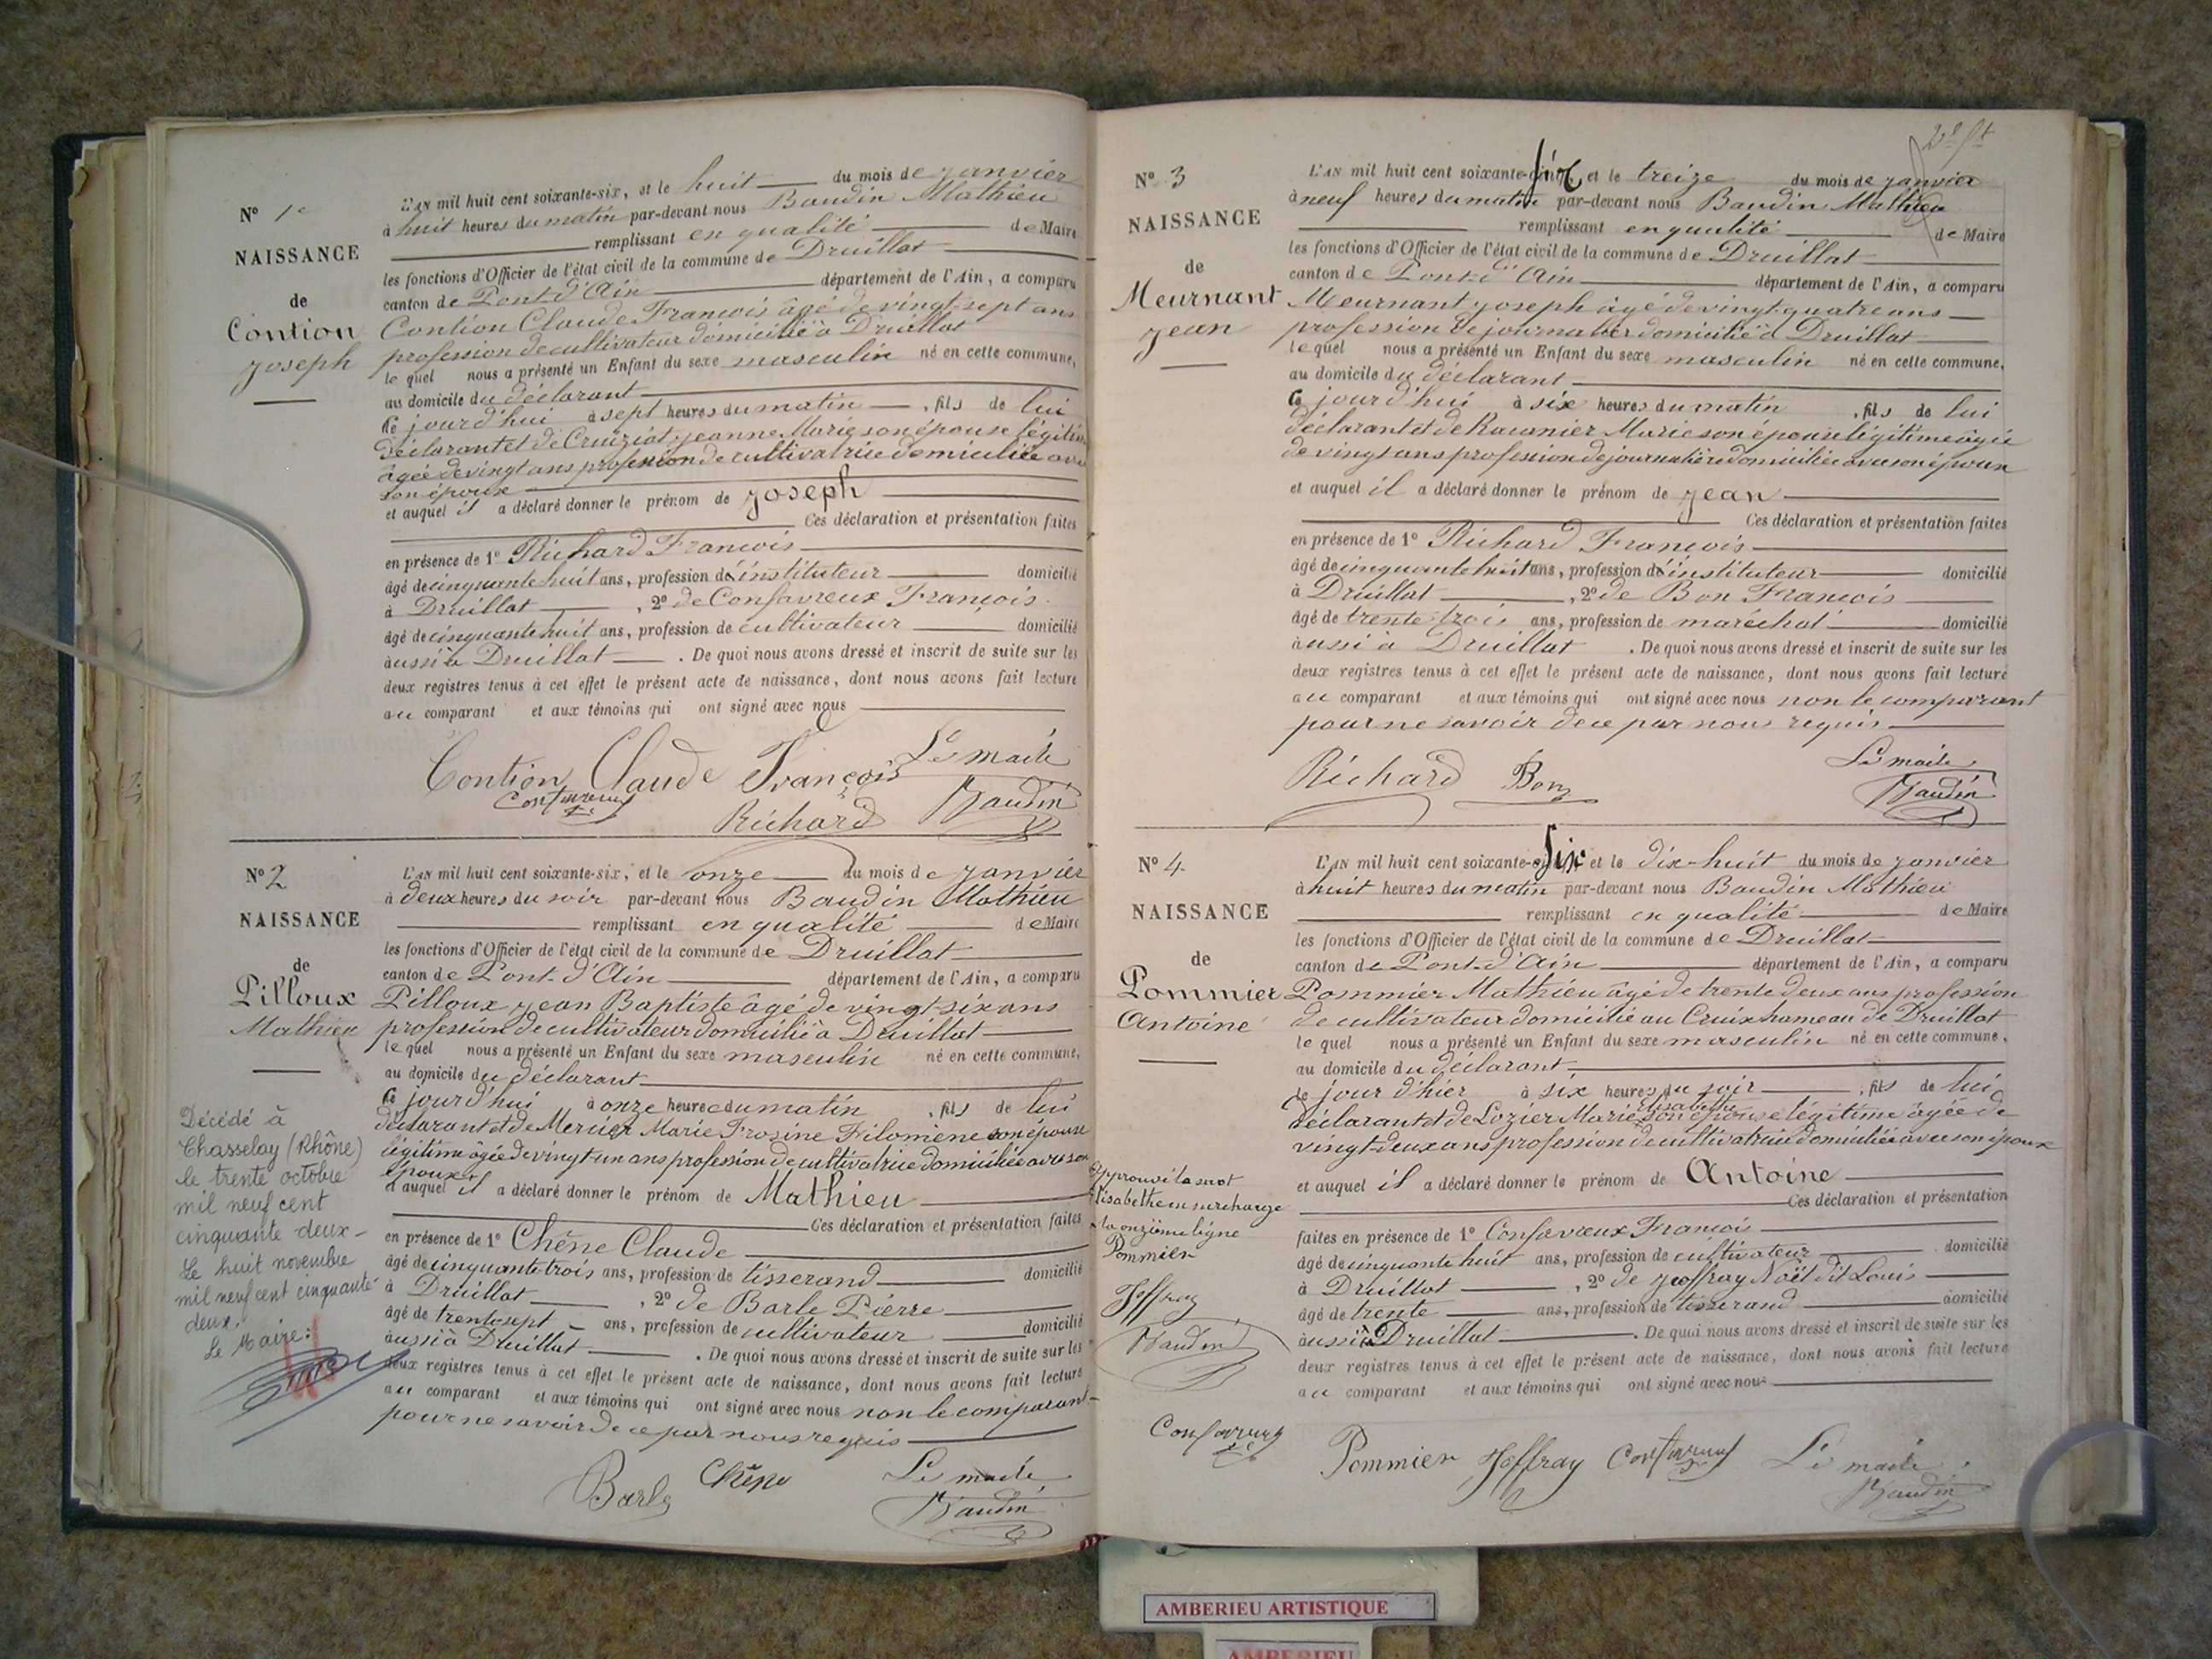 N° 1er
NAISSANCE
de
Contion
Joseph
L'AN mil huit cent soixante-six, et le huit du mois de Janvier
à huit heures du matin par-devant nous Baudin Mathieu
remplissant en qualité de Maire
les fonctions d'Officier de l'état civil de la commune de Druillat
canton de Pont-d'Ain département de l'Ain, a comparu
Contion Claude François âgé de vingt-sept ans
profession de cultivateur domicilié à Druillat
lequel nous a présenté un Enfant du sexe masculin né en cette commune,
au domicile du déclarant
Ce jourd'hui à sept heures du matin, fils de lui
déclarant et de Cruiziat Jeanne Marie son épouse légitime
âgée de vingt ans profession de cultivatrice domiciliée avec
son époux
et auquel il a déclaré donner le prénom de Joseph
Ces déclaration et présentation faites
en présence de 1° Richard François
âgé de cinquante huit ans, profession d'instituteur domicilié
à Druillat, 2° de Confavreux François
âgé de cinquante huit ans, profession de cultivateur domicilié
aussi à Druillat. De quoi nous avons dressé et inscrit de suite sur les
deux registres tenus à cet effet le présent acte de naissance, dont nous avons fait lecture
au comparant et aux témoins qui ont signé avec nous
Contion Claude François Le maire
Confavreux Richard Baudin
N° 2
NAISSANCE
de
Pilloux
Mathieu
Décédé à
Chasselay (Rhône)
le trente octobre
mil neuf cent
cinquante deux -
Le huit novembre
mil neuf cent cinquante
deux.
Le Maire:
L'AN mil huit cent soixante-six, et le onze du mois de Janvier
à deux heures du soir par-devant nous Baudin Mathieu
remplissant en qualité de Maire
les fonctions d'Officier de l'état civil de la commune de Druillat
canton de Pont-d'Ain département de l'Ain, a comparu
Pilloux Jean Baptiste âgé de vingt-six ans
profession de cultivateur domicilié à Druillat
lequel nous a présenté un Enfant du sexe masculin né en cette commune,
au domicile du déclarant
Ce jourd'hui à onze heures du matin, fils de lui
déclarant et de Mercier Marie Frosine Filomène son épouse
légitime âgée de vingt un ans profession de cultivatrice domiciliée avec son
époux
et auquel il a déclaré donner le prénom de Mathieu
Ces déclaration et présentation faites
en présence de 1° Chêne Claude
âgé de cinquante-trois ans, profession de tisserand domicilié
à Druillat, 2° de Barle Pierre
âgé de trente-sept ans, profession de cultivateur domicilié
aussi à Druillat. De quoi nous avons dressé et inscrit de suite sur les
deux registres tenus à cet effet le présent acte de naissance, dont nous avons fait lecture
au comparant et aux témoins qui ont signé avec nous non le comparant
pour ne savoir de ce par nous requis
Barle Chêne Le maire
Baudin
N° 3
NAISSANCE
de
Meurnant
Jean
L'AN mil huit cent soixante-six et le treize du mois de Janvier
à neuf heures du matin par-devant nous Baudin Mathieu
remplissant en qualité de Maire
les fonctions d'Officier de l'état civil de la commune de Druillat
canton de Pont-d'Ain département de l'Ain, a comparu
Meurnant Joseph âgé de vingt-quatre ans
profession de journalier domicilié à Druillat
lequel nous a présenté un Enfant du sexe masculin né en cette commune,
au domicile du déclarant
Ce jourd'hui à six heures du matin, fils de lui
déclarant et de Marie son épouse légitime âgée
de vingt ans profession de journalière domiciliée avec son époux
et auquel il a déclaré donner le prénom de Jean
Ces déclaration et présentation faites
en présence de 1° Richard François
âgé de cinquante huit ans, profession d'instituteur domicilié
à Druillat, 2° de Bon François
âgé de trente-trois ans, profession de maréchal domicilié
aussi à Druillat. De quoi nous avons dressé et inscrit de suite sur les
deux registres tenus à cet effet le présent acte de naissance, dont nous avons fait lecture
au comparant et aux témoins qui ont signé avec nous non le comparant
pour ne savoir de ce par nous requis
Richard Bon Le maire
Baudin
N° 4
NAISSANCE
de
Pommier
Antoine
L'AN mil huit cent soixante-six et le dix-huit du mois de Janvier
à huit heures du matin par-devant nous Baudin Mathieu
remplissant en qualité de Maire
les fonctions d'Officier de l'état civil de la commune de Druillat
canton de Pont-d'Ain département de l'Ain, a comparu
Pommier Mathieu âgé de trente deux ans profession
de cultivateur domicilié au Cruix hameau de Druillat
lequel nous a présenté un Enfant du sexe masculin né en cette commune,
au domicile du déclarant
le jour d'hier à six heures du soir, fils de lui
déclarant et de Lozier Marie Elisabethe son épouse légitime âgée de
vingt-deux ans profession de cultivatrice domiciliée avec son époux
et auquel il a déclaré donner le prénom de Antoine
Ces déclaration et présentation
faites en présence de 1° Confavreux François
âgé de cinquante huit ans, profession de cultivateur domicilié
à Druillat, 2° de Joffray Noël dit Louis
âgé de trente ans, profession de tisserand domicilié
aussi à Druillat. De quoi nous avons dressé et inscrit de suite sur les
deux registres tenus à cet effet le présent acte de naissance, dont nous avons fait lecture
au comparant et aux témoins qui ont signé avec nous
Approuvé le mot
Elisabethe en surcharge
à la onzième ligne
Pommier
Joffray
Baudin
Confavreux
Pommier Joffray Confavreux Le maire
Baudin
AMBERIEU ARTISTIQUE
AMBERIEU